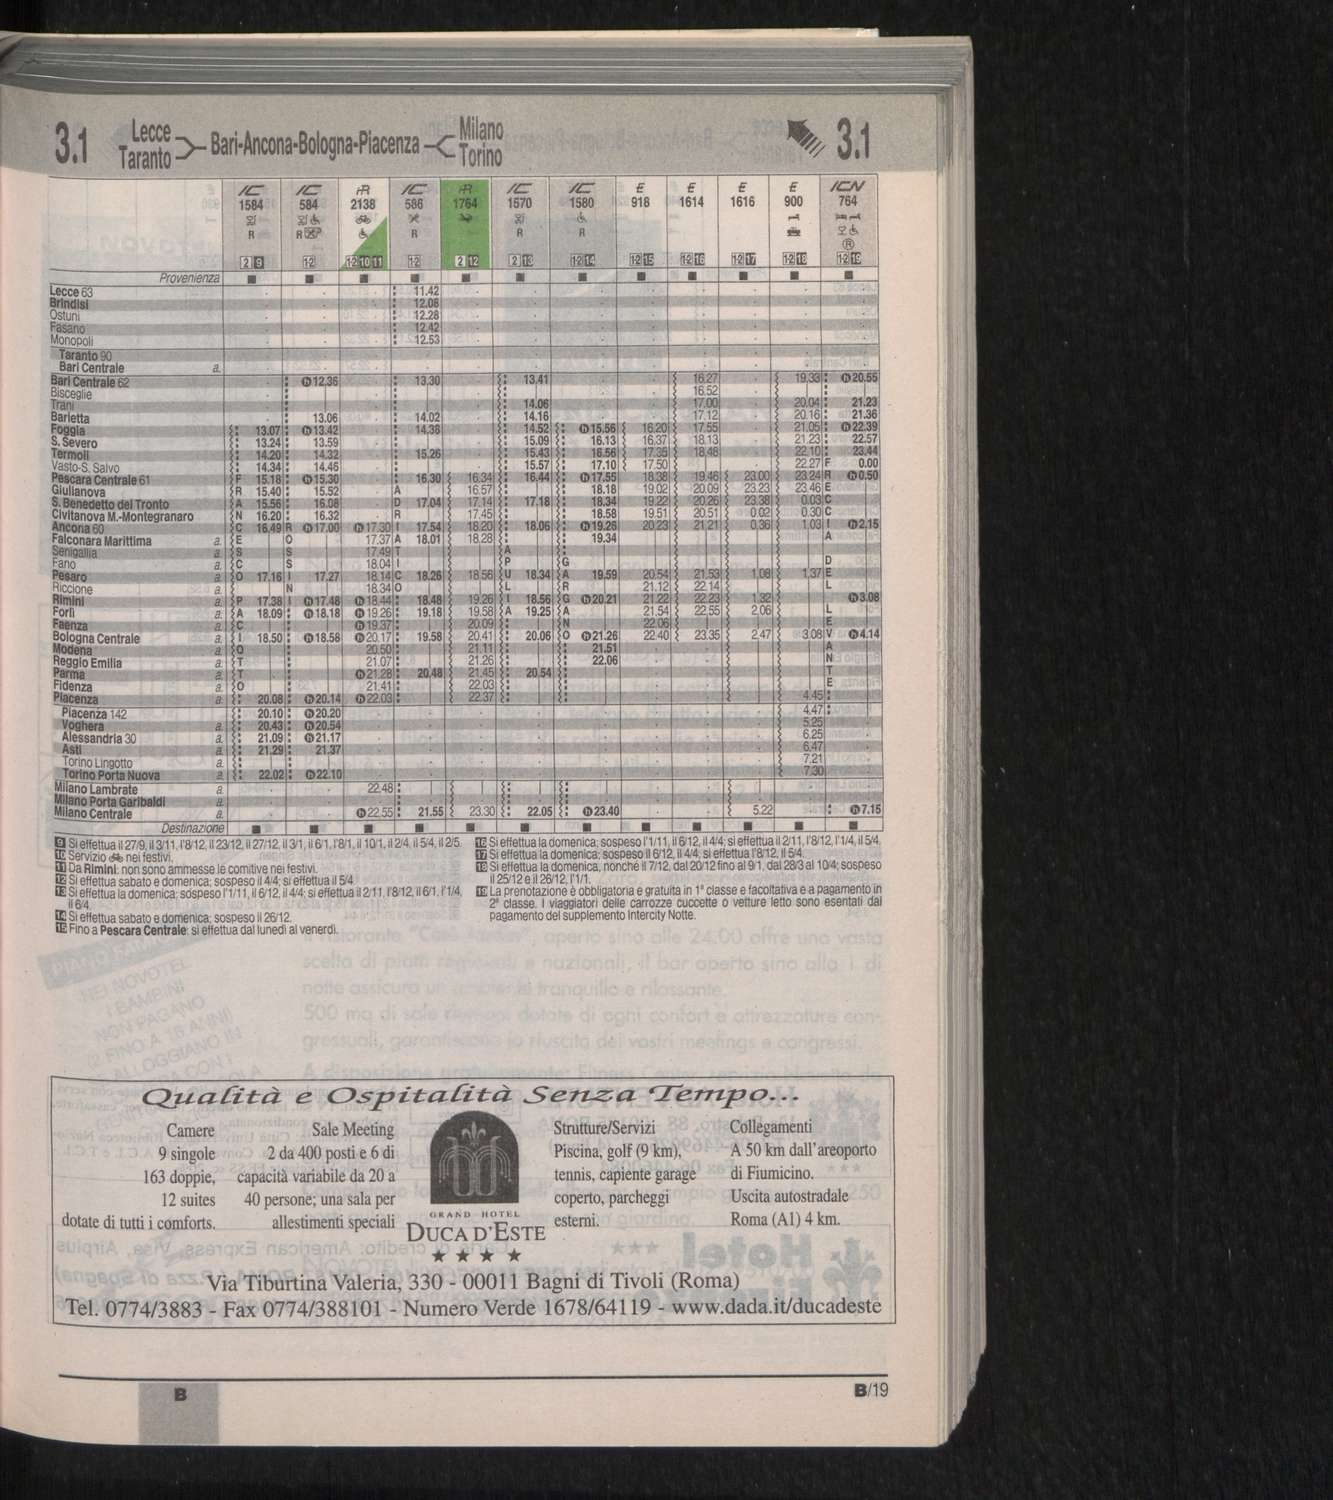 3.1 Lecce Taranto Bari-Ancona-Bologna-Piacenza Milano Torino 3.1
IC IC iR IC iR IC IC E E E E ICN
1584 584 2138 586 1764 1570 1580 918 1614 1616 900 764
R R R R R R
2 9 12 12 10 11 12 2 12 2 13 12 14 12 15 12 16 12 17 12 18 12 19
Provenienza
Lecce 63 11.42
Brindisi 12.08
Ostuni 12.28
Fasano 12.42
Monopoli 12.53
Taranto 90
Bari Centrale a.
Bari Centrale 62 h 12.36 13.30 13.41 16.27 19.33 h 20.55
Bisceglie 16.52
Trani 14.06 17.00 20.04 21.23
Barletta 13.06 14.02 14.16 17.12 20.16 21.36
Foggia 13.07 h 13.42 14.38 14.52 h 15.56 16.20 17.55 21.05 h 22.39
S. Severo 13.24 13.59 15.09 16.13 16.37 18.13 21.23 22.57
Termoli 14.20 14.32 15.26 15.43 16.56 17.35 18.48 22.10 23.44
Vasto-S. Salvo 14.34 14.46 15.57 17.10 17.50 22.27 F 0.00
Pescara Centrale 61 F 15.18 h 15.30 16.30 16.34 16.44 h 17.55 18.38 19.46 23.00 23.24 R h 0.50
Giulianova R 15.40 15.52 A 16.57 18.18 19.02 20.09 23.23 23.46 E
S. Benedetto del Tronto A 15.56 16.08 D 17.04 17.14 17.18 18.34 19.22 20.26 23.38 0.03 C
Civitanova M.-Montegranaro N 16.20 16.32 R 17.45 18.58 19.51 20.51 0.02 0.30 C
Ancona 60 C 16.49 R h 17.00 h 17.30 I 17.54 18.20 18.06 h 19.26 20.23 21.21 0.36 1.03 I h 2.15
Falconara Marittima a. E O 17.37 A 18.01 18.28 19.34 A
Senigallia a. S S 17.49 T A
Fano a. C S 18.04 I P G D
Pesaro a. O 17.16 I 17.27 18.14 C 18.26 18.56 U 18.34 A 19.59 20.54 21.53 1.08 1.37 E
Riccione a. N 18.34 O L R 21.12 22.14 L
Rimini a. P 17.38 I h 17.48 h 18.44 18.48 19.26 I 18.56 G h 20.21 21.22 22.23 1.32 h 3.08
Forlì a. A 18.09 h 18.18 h 19.26 19.18 19.58 A 19.25 A 21.54 22.55 2.06 L
Faenza a. C h 19.37 20.09 N 22.06 E
Bologna Centrale a. I 18.50 h 18.58 h 20.17 19.58 20.41 20.06 O h 21.26 22.40 23.35 2.47 3.08 V h 4.14
Modena a. O 20.50 21.11 21.51 A
Reggio Emilia a. T 21.07 21.26 22.06 N
Parma a. T h 21.28 20.48 21.45 20.54 T
Fidenza a. O 21.41 22.03 E
Piacenza a. 20.08 h 20.14 h 22.03 22.37 4.45
Piacenza 142 20.10 h 20.20 4.47
Voghera a. 20.43 h 20.54 5.25
Alessandria 30 a. 21.09 h 21.17 6.25
Asti a. 21.29 21.37 6.47
Torino Lingotto a. 7.21
Torino Porta Nuova a. 22.02 h 22.10 7.30
Milano Lambrate a. 22.48
Milano Porta Garibaldi a.
Milano Centrale a. h 22.55 21.55 23.30 22.05 h 23.40 5.22 h 7.15
Destinazione
9 Si effettua il 27/9, il 3/11, l'8/12, il 23/12, il 27/12, il 3/1, il 6/1, l'8/1, il 10/1, il 2/4, il 5/4, il 2/5.
10 Servizio nei festivi.
11 Da Rimini: non sono ammesse le comitive nei festivi.
12 Si effettua sabato e domenica; sospeso il 4/4; si effettua il 5/4.
13 Si effettua la domenica; sospeso l'1/11, il 6/12, il 4/4; si effettua il 2/11, l'8/12, il 6/1, l'1/4,
il 6/4.
14 Si effettua sabato e domenica; sospeso il 26/12.
15 Fino a Pescara Centrale: si effettua dal lunedì al venerdì.
16 Si effettua la domenica; sospeso l'1/11, il 6/12, il 4/4; si effettua il 2/11, l'8/12, l'1/4, il 5/4.
17 Si effettua la domenica; sospeso il 6/12, il 4/4; si effettua l'8/12, il 5/4.
18 Si effettua la domenica, nonché il 7/12, dal 20/12 fino al 9/1, dal 28/3 al 10/4; sospeso
il 25/12 e il 26/12, l'1/1.
19 La prenotazione è obbligatoria e gratuita in 1ª classe e facoltativa e a pagamento in
2ª classe. I viaggiatori delle carrozze cuccette o vetture letto sono esentati dal
pagamento del supplemento Intercity Notte.
Qualità e Ospitalità Senza Tempo...
Camere
9 singole
163 doppie,
12 suites
dotate di tutti i comforts.
Sale Meeting
2 da 400 posti e 6 di
capacità variabile da 20 a
40 persone; una sala per
allestimenti speciali
GRAND HOTEL
DUCA D'ESTE
★ ★ ★ ★
Strutture/Servizi
Piscina, golf (9 km),
tennis, capiente garage
coperto, parcheggi
esterni.
Collegamenti
A 50 km dall'areoporto
di Fiumicino.
Uscita autostradale
Roma (A1) 4 km.
Via Tiburtina Valeria, 330 - 00011 Bagni di Tivoli (Roma)
Tel. 0774/3883 - Fax 0774/388101 - Numero Verde 1678/64119 - www.dada.it/ducadeste
B
B/19